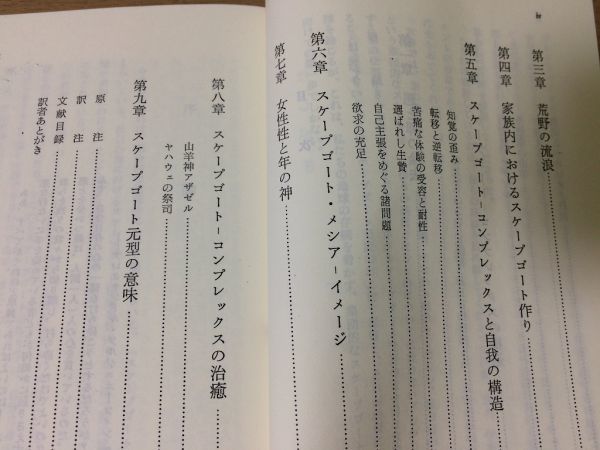 第三章　荒野の流浪
第四章　家族内におけるスケープゴート作り
第五章　スケープゴート=コンプレックスと自我の構造
知覚の歪み
転移と逆転移
苦痛な体験の受容と耐性
選ばれし生贄
自己主張をめぐる諸問題
欲求の充足
第六章　スケープゴート・メシア=イメージ
第七章　女性性と年の神
第八章　スケープゴート=コンプレックスの治癒
山羊神アザゼル
ヤハウェの祭司
第九章　スケープゴート元型の意味
原　注
訳　注
文献目録
訳者あとがき